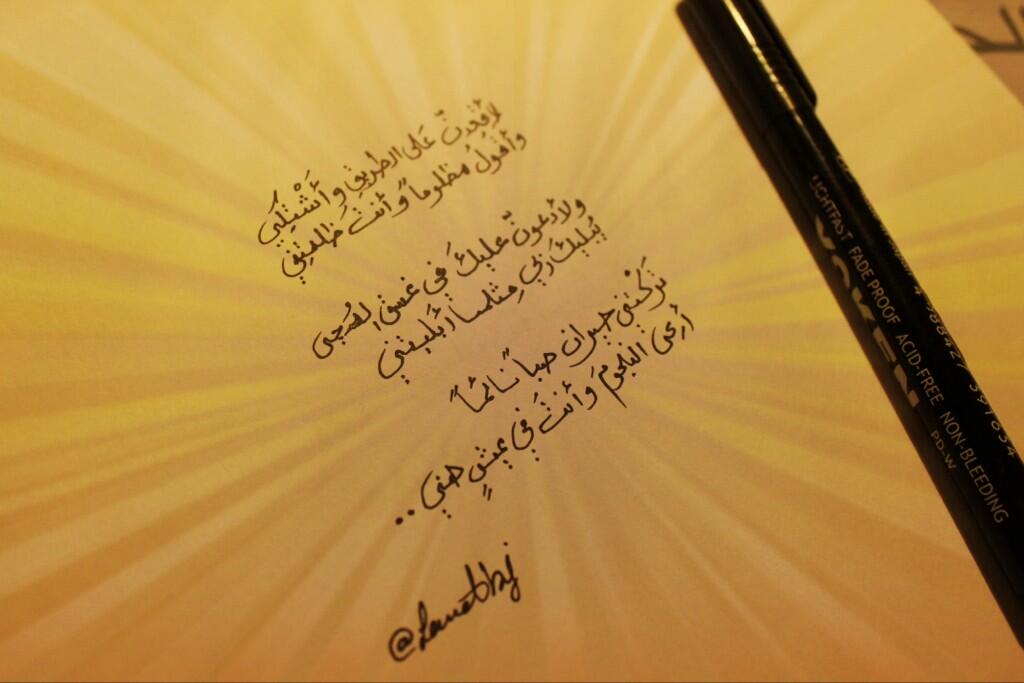 لأقعدن على الطريق وأشتكي
وأقول مظلوماً وأنت ظلمتني
ولأدعون عليك في غسق الدجى
يبليك ربي مثلما أبليتني
تركتني حيران صباً نائماً
أرعى النجوم وأنت في عيشٍ هني..
LIGHTFAST FADE PROOF ACID-FREE NON-BLEEDING
PD-W